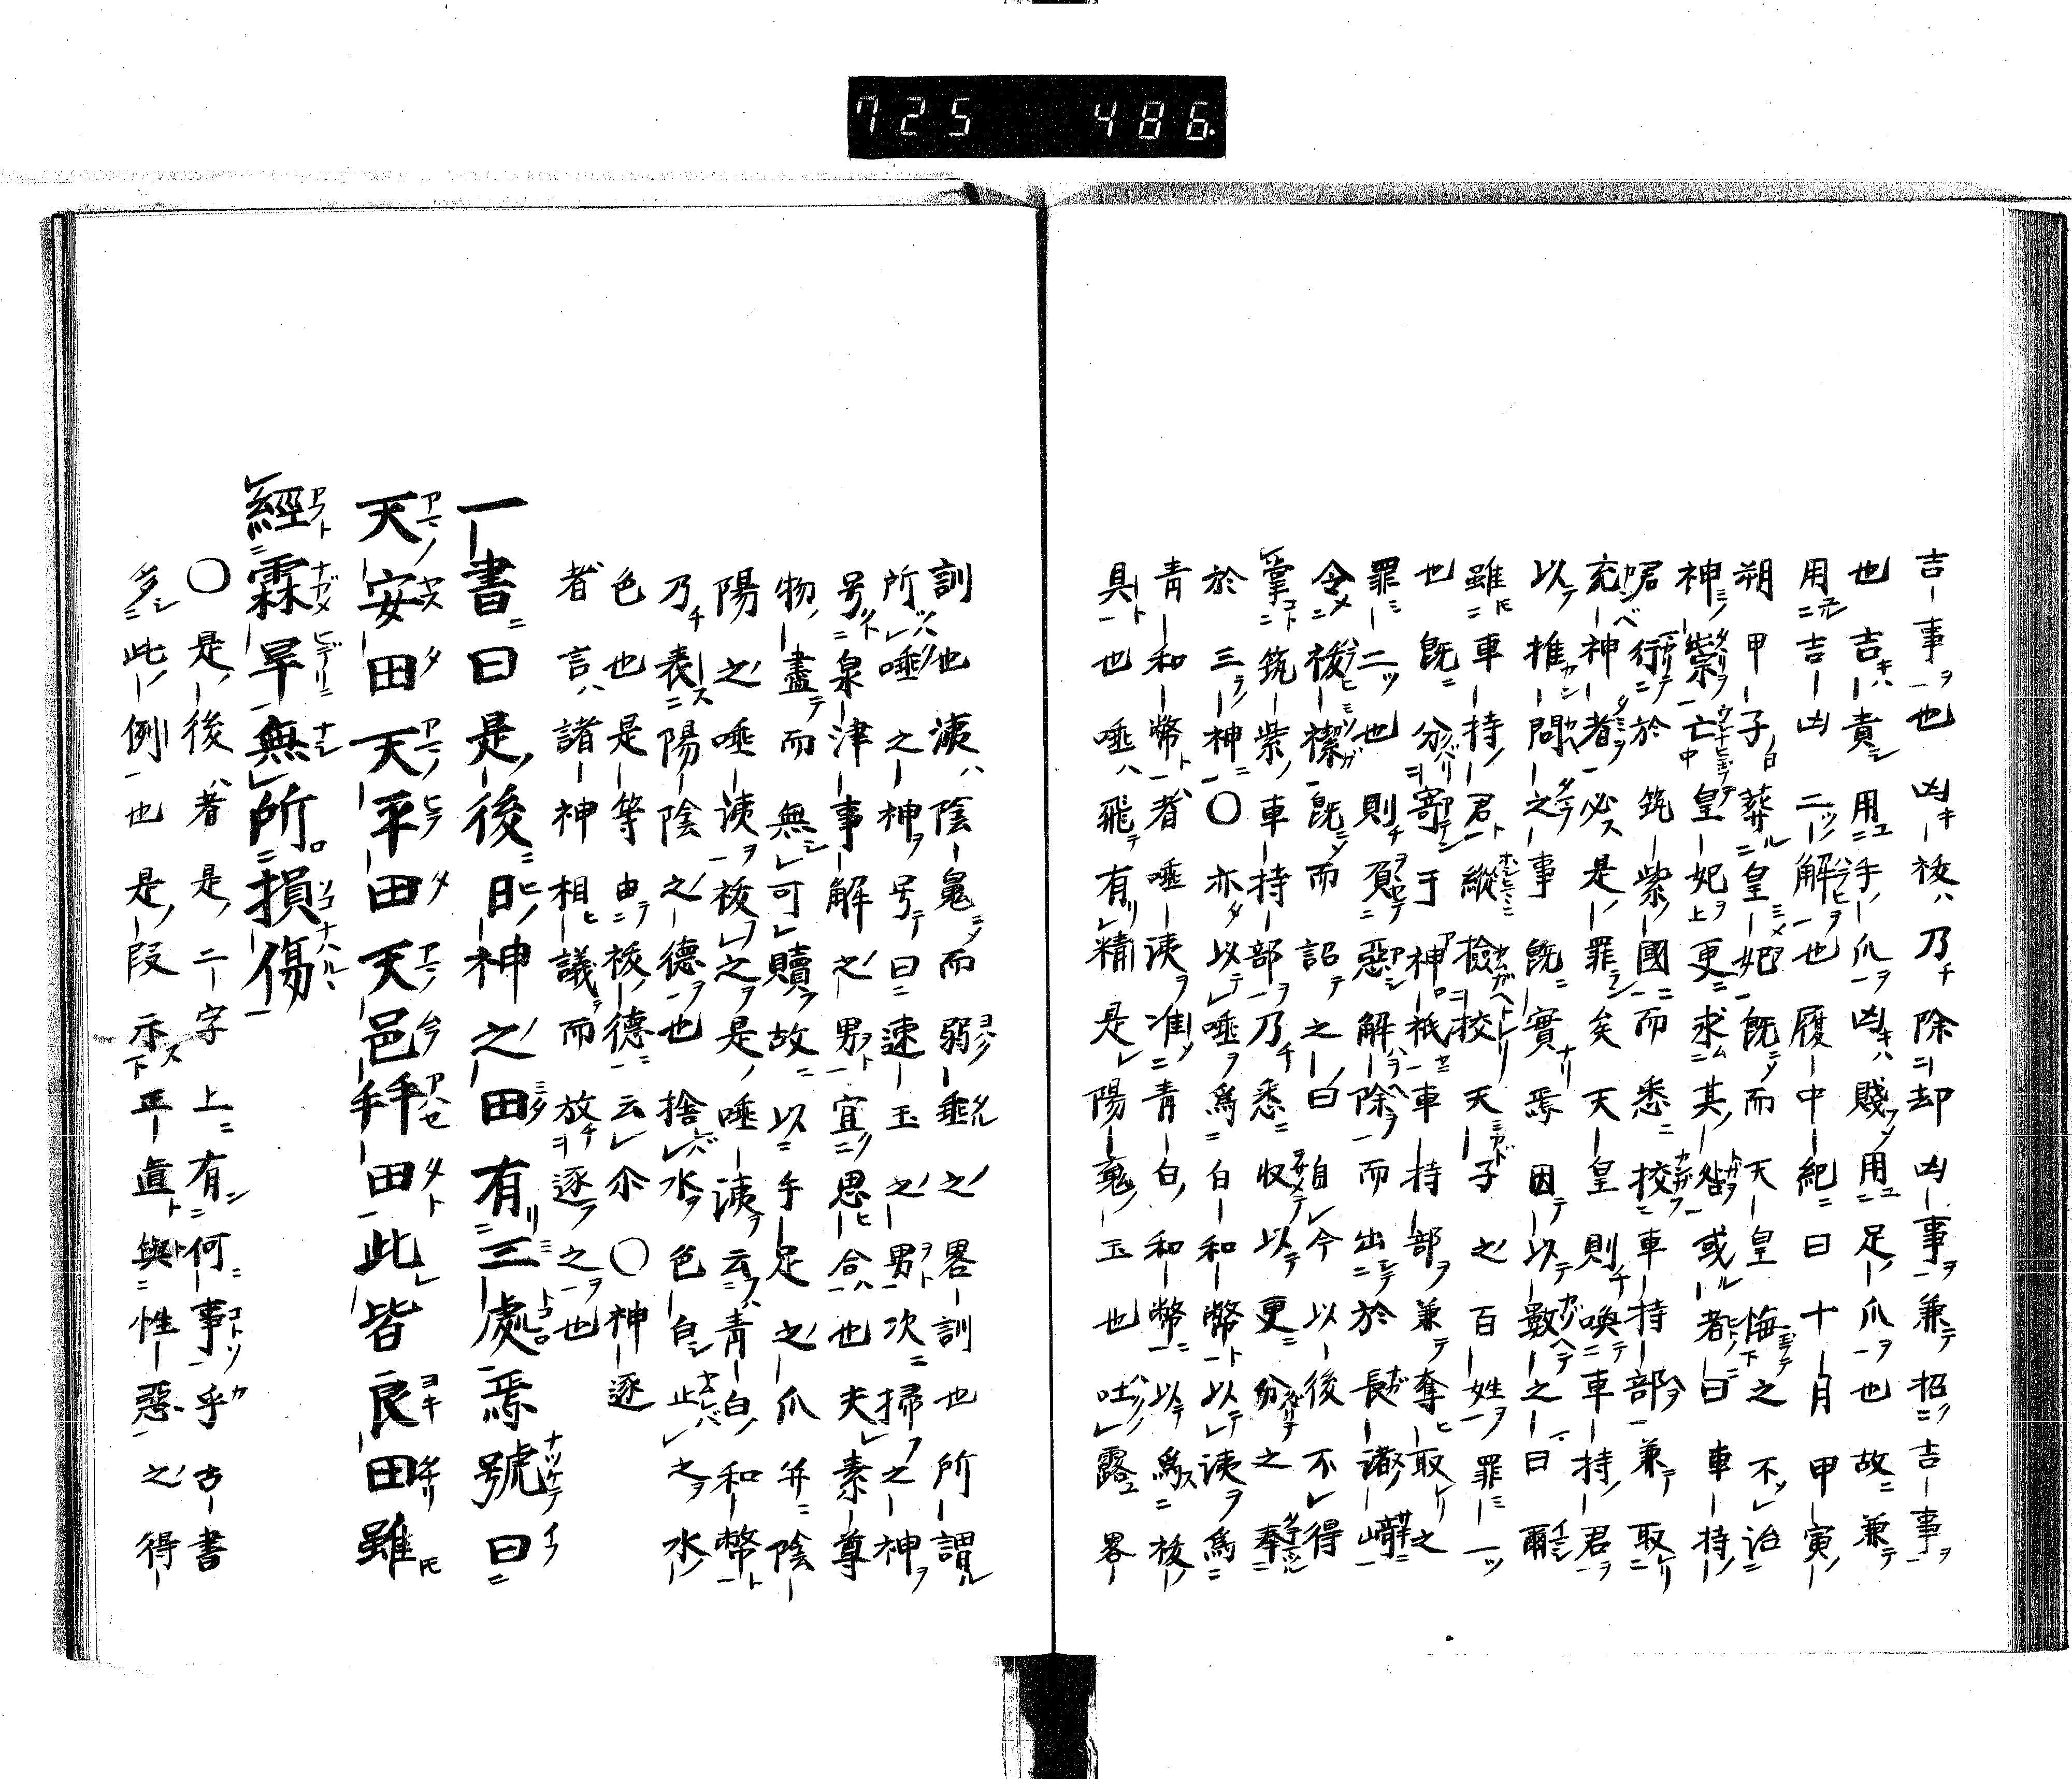 725 486
吉事也凶祓乃除却凶事兼招吉事
也吉責用手爪凶賤用足爪也故兼
用吉凶二解也履中紀曰十月甲寅
朔甲子葬皇妃既而天皇悔之不治
神祟亡皇妃更求其咎或者曰車持
君行於筑紫國而悉挍車持部兼取
充神者必是罪矣天皇則喚車持君
以推問之事既實焉因以數之曰爾
雖車持君縱檢挍天子之百姓罪一
也既分寄于神祇車持部兼奪取之
罪二也則負惡解除而出於長渚﨑
令祓禊既而詔之曰自今以後不得
掌筑紫車持部乃悉收以更分之奉
於三神〇亦以唾爲白和幣以洟爲
青和幣者唾洟准青白和幣以爲祓
具也唾飛有精是陽䰟玉也吐露畧
訓也洟陰䰟而弱垂之畧訓也所謂
所唾之神号曰速玉之男次掃之神
号泉津事解之男宜思合也夫素尊
物盡而無可贖故以手足之爪并陰
陽之唾洟祓之是唾洟云青白和幣
乃表陽陰之德也捨水色白止之水
色也是等由祓德云尒〇神逐
者言諸神相議而放逐之也
一書曰是後日神之田有三處焉號曰
天安田天平田天邑𢴃田此皆良田雖
經霖旱無所損傷
〇是後者是二字上有何事乎古書
多此例也是段示平直與性惡之得